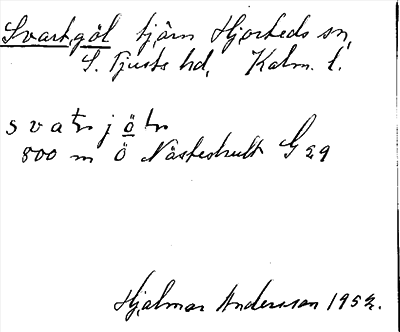 Svartgöl tjärn Hjorteds sn,
S. Tjusts hd, Kalm. l.
800 m Ö Nästeshult G 29
Hjalmar Andersson 1952.